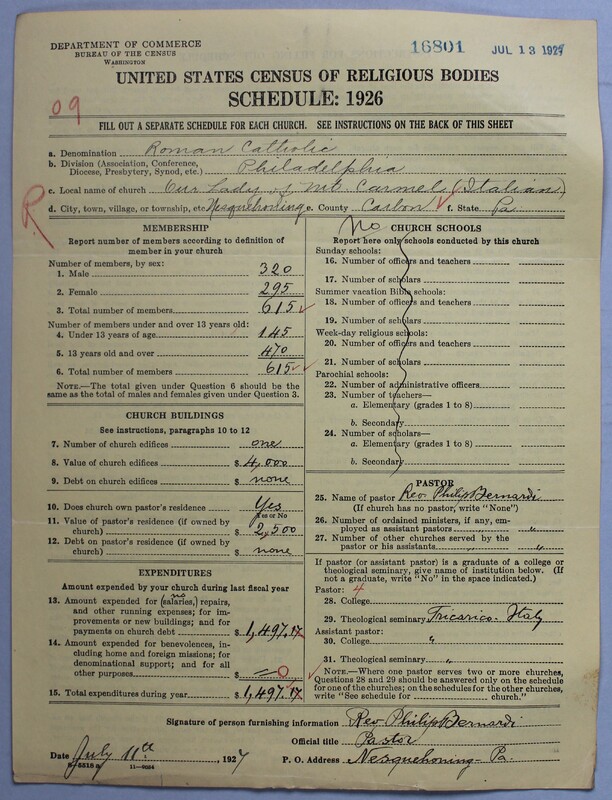 DEPARTMENT OF COMMERCE
BUREAU OF THE CENSUS
WASHINGTON
16801 JUL 13 1927
UNITED STATES CENSUS OF RELIGIOUS BODIES
SCHEDULE: 1926
09
FILL OUT A SEPARATE SCHEDULE FOR EACH CHURCH. SEE INSTRUCTIONS ON THE BACK OF THIS SHEET
a. Denomination Roman Catholic
b. Division (Association, Conference, Diocese, Presbytery, Synod, etc.) Philadelphia
c. Local name of church Our Lady of Mt. Carmel (Italian)
d. City, town, village, or township, etc. Nesquehoning e. County Carbon f. State Pa
R
MEMBERSHIP
Report number of members according to definition of
member in your church
Number of members, by sex:
1. Male 320
2. Female 295
3. Total number of members 615
Number of members under and over 13 years old:
4. Under 13 years of age 145
5. 13 years old and over 470
6. Total number of members 615
NOTE.—The total given under Question 6 should be
the same as the total of males and females given under Question 3.
CHURCH BUILDINGS
See instructions, paragraphs 10 to 12
7. Number of church edifices one
8. Value of church edifices $ 4,000
9. Debt on church edifices $ none
10. Does church own pastor's residence Yes
Yes or No
11. Value of pastor's residence (if owned by
church) $ 2,500
12. Debt on pastor's residence (if owned by
church) $ none
EXPENDITURES
Amount expended by your church during last fiscal year
13. Amount expended for (salaries,) no repairs,
and other running expenses; for im-
provements or new buildings; and for
payments on church debt $ 1,497.17
14. Amount expended for benevolences,
including home and foreign missions; for
denominational support; and for all
other purposes $ —0
15. Total expenditures during year $ 1,497.17
No CHURCH SCHOOLS
Report here only schools conducted by this church
Sunday schools:
16. Number of officers and teachers
17. Number of scholars
Summer vacation Bible schools:
18. Number of officers and teachers
19. Number of scholars
Week-day religious schools:
20. Number of officers and teachers
21. Number of scholars
Parochial schools:
22. Number of administrative officers
23. Number of teachers—
a. Elementary (grades 1 to 8)
b. Secondary
24. Number of scholars—
a. Elementary (grades 1 to 8)
b. Secondary
PASTOR
25. Name of pastor Rev. Philip Bernardi
(If church has no pastor, write "None")
26. Number of ordained ministers, if any, em-
ployed as assistant pastors "
27. Number of other churches served by the
pastor or his assistants " "
If pastor (or assistant pastor) is a graduate of a college or
theological seminary, give name of institution below. (If
not a graduate, write "No" in the space indicated.)
Pastor: 4
28. College
29. Theological seminary Tricarico. Italy
Assistant pastor:
30. College "
31. Theological seminary "
NOTE.—Where one pastor serves two or more churches,
Questions 28 and 29 should be answered only on the schedule
for one of the churches; on the schedules for the other churches,
write "See schedule for ........ church."
Signature of person furnishing information Rev. Philip Bernardi
Official title Pastor
Date July 11th, 1927 P. O. Address Nesquehoning Pa.
11—9024